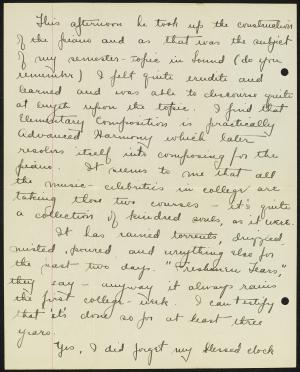 This afternoon he took up the construction
of the piano and as that was the subject
of my semester-topic in Sound (do you
remember) I felt quite erudite and
learned and was able to discourse quite
at length upon the topic. I find that
Elementary Composition is practically
Advanced Harmony which later
resolves itself into composing for the
piano. It seems to me that all
the music-celebrities in college are
taking those two courses - it's quite
a collection of kindred souls, as it were.
It has rained torrents, drizzled,
misted, poured, and everything else for
the past two days. "Freshmen Tears,"
they say - anyway it always rains
the first college-week. I can testify
that it's done so for at least three
years.
Yes, I did forget my blessed clock